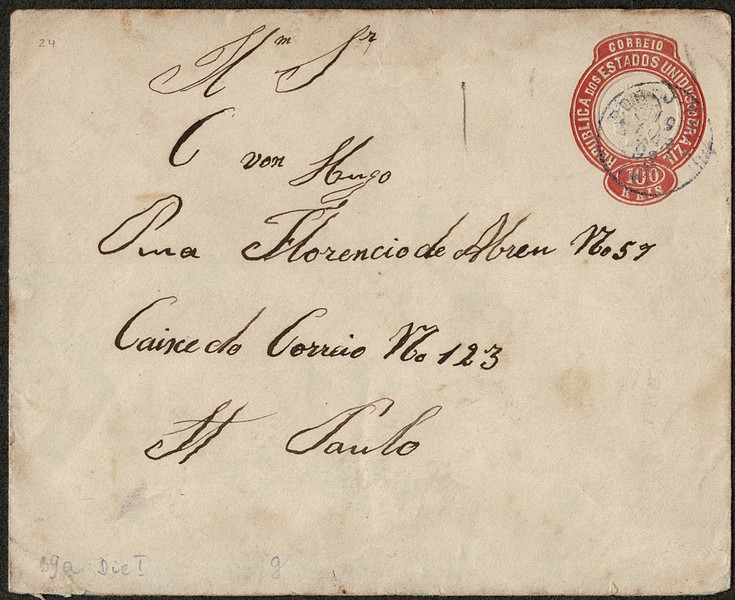 24
Hm Sr
C von Hugo
Rua Florencio de Abreu No 59
Caixe do Correio No 123
St Paulo
CORREIO
REPUBLICA DOS ESTADOS UNIDOS DO BRAZIL
100
REIS
39a Die I
g